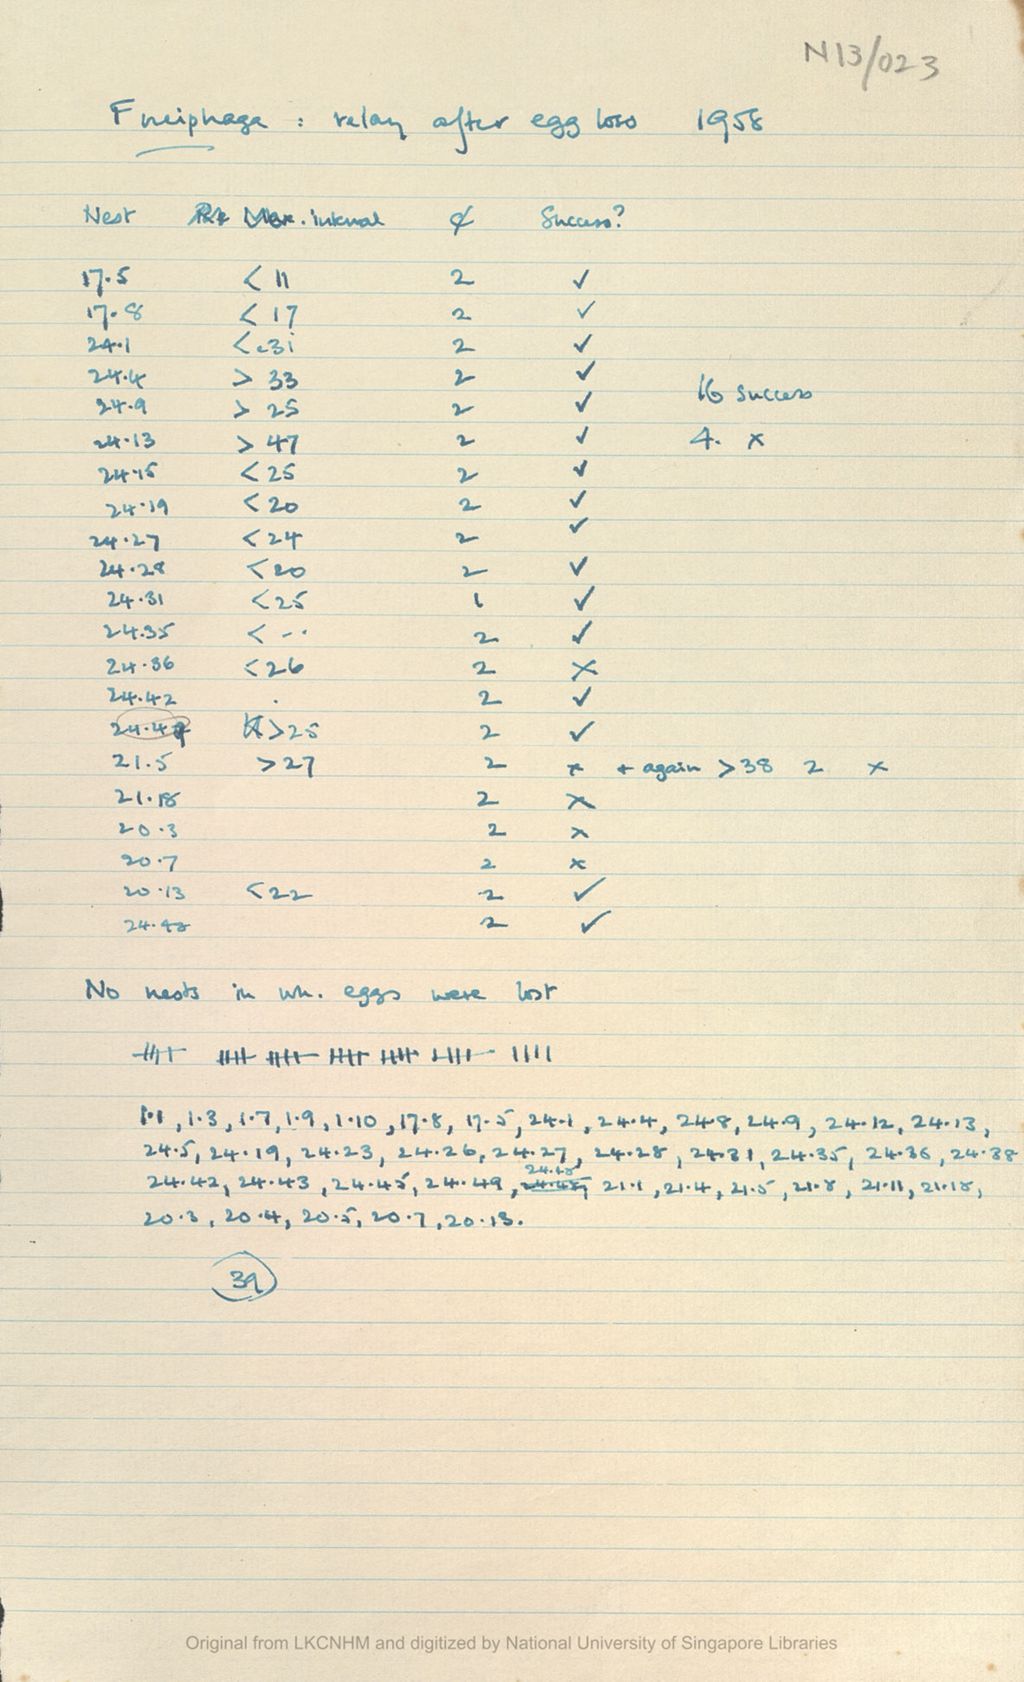 N13/023
Fuciphaga : relay after egg loss 1958
Nest Max. interval ¢ Success?
17.5 < 11 2 ✓
17.8 < 17 2 ✓
24.1 < 31 2 ✓
24.4 > 33 2 ✓
24.9 > 25 2 ✓
16 success
24.13 > 47 2 ✓
4. x
24.15 < 25 2 ✓
24.19 < 20 2 ✓
24.27 < 24 2 ✓
24.28 < 20 2 ✓
24.31 < 25 1 ✓
24.35 < -- 2 ✓
24.36 < 26 2 x
24.42 . 2 ✓
24.49 > 25 2 ✓
21.5 > 27 2 x + again > 38 2 x
21.18 2 x
20.3 2 x
20.7 2 x
20.13 < 22 2 ✓
24.48 2 ✓
No nests in wh. eggs were lost
1.1, 1.3, 1.7, 1.9, 1.10, 17.8, 17.5, 24.1, 24.4, 24.8, 24.9, 24.12, 24.13,
24.5, 24.19, 24.23, 24.26, 24.27, 24.28, 24.31, 24.35, 24.36, 24.38
24.42, 24.43, 24.45, 24.49, 24.48, 21.1, 21.4, 21.5, 21.8, 21.11, 21.18,
20.3, 20.4, 20.5, 20.7, 20.13.
39
Original from LKCNHM and digitized by National University of Singapore Libraries